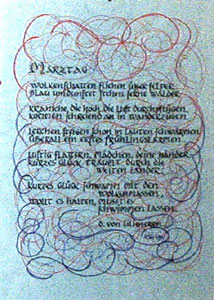 MÄRZTAG
WOLKENSCHATTEN FLIEHEN ÜBER FELDER
BLAU UMDUNSTET STEHEN FERNE WÄLDER
KRANICHE, DIE HOCH DIE LUFT DURCHPFLÜGEN,
KOMMEN SCHREIEND AN IN WANDERZÜGEN
LERCHEN STEIGEN SCHON IN LAUTEN SCHWÄRMEN,
ÜBERALL EIN ERSTES FRÜHLINGSLÄRMEN
LUSTIG FLATTERN, MÄDCHEN, DEINE BÄNDER
KURZES GLÜCK TRÄUMT DURCH DIE
WEITEN LÄNDER
KURZES GLÜCK SCHWAMM MIT DEN
WOLKENMASSEN,
WOLLT ES HALTEN, MUSST ES
SCHWIMMEN LASSEN.
D. VON LILIENCRON